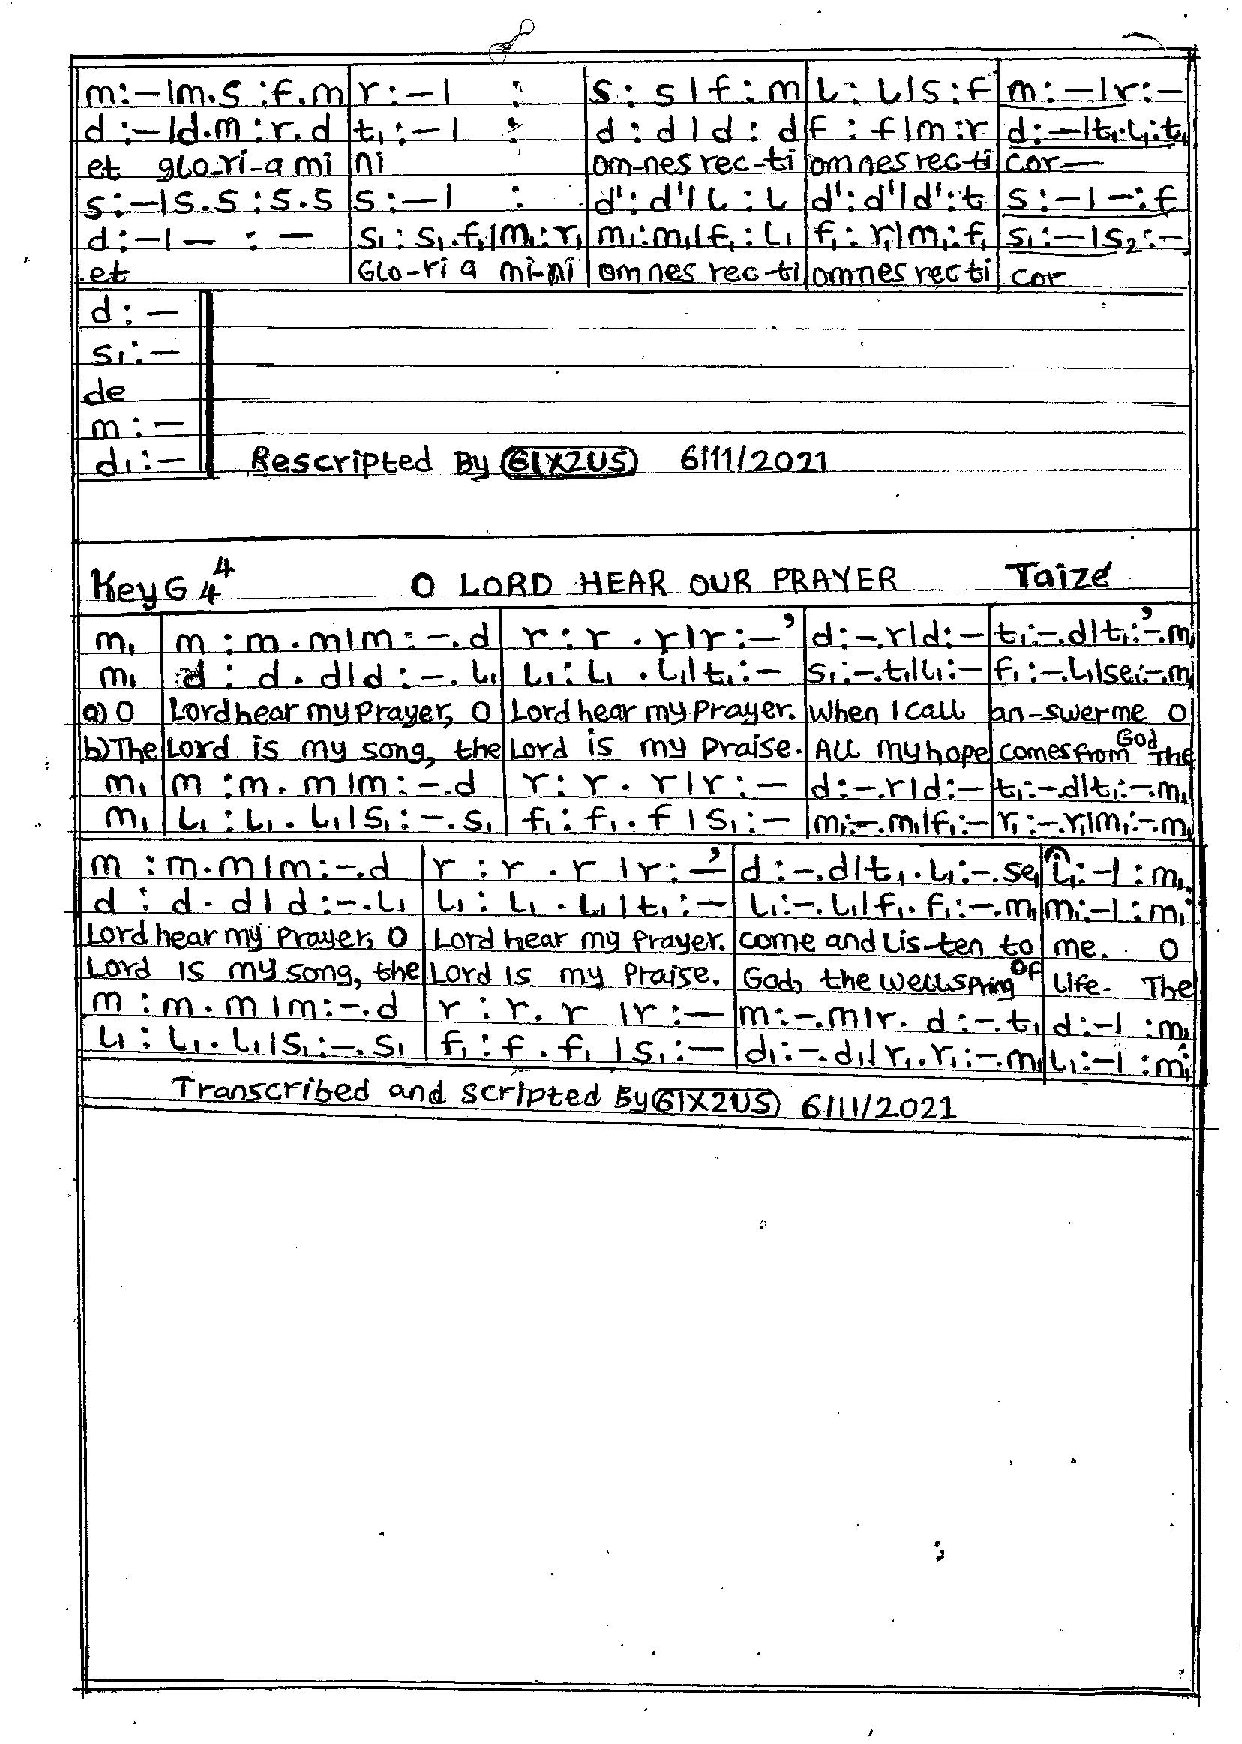 m:–|m.s :f.m|r:–| : |s: s|f:m|l: l|s:f|m:–|r:–
d:–|d.m:r.d|t₁:–| : |d:d|d:d|f:f|m:r|d:–|t₁.l₁:t₁
et glo-ri-a mi|ni|om-nes rec-ti|omnes rec-ti|cor—
s:–|s.s:s.s|s:–| : |d':d'|l:l|d':d'|d':t|s:–|–:f
d:–|– : –|s₁:s₁.f₁|m₁:r₁|m₁:m₁|f₁:l₁|f₁:r₁|m₁:f₁|s₁:–|s₂:–
et|Glo-ri a mi-ni|omnes rec-ti|omnes recti|cor
d:–
s₁:–
de
m:–
d₁:–  Rescripted By G1X2US 6/11/2021
Key G 4/4  O LORD HEAR OUR PRAYER  Taizé
m₁|m:m.m|m:–.d|r:r.r|r:–’|d:–.r|d:–|t₁:–.d|t₁:’–.m₁
m₁|d:d.d|d:–.l₁|l₁:l₁.l₁|t₁:–|s₁:–.t₁|l₁:–|f₁:–.l₁|se₁:–.m₁
a) O|Lord hear my Prayer, O|Lord hear my Prayer.|When I call|an-swer me O
b) The|Lord is my song, the|Lord is my Praise.|All my hope|comes from God The
m₁|m:m.m|m:–.d|r:r.r|r:–|d:–.r|d:–|t₁:–.d|t₁:–.m₁
m₁|l₁:l₁.l₁|s₁:–.s₁|f₁:f₁.f|s₁:–|m₁:–.m₁|f₁:–|r₁:–.r₁|m₁:–.m₁
m:m.m|m:–.d|r:r.r|r:–’|d:–.d|t₁.l₁:–.se₁|l₁:–|:m₁
d:d.d|d:–.l₁|l₁:l₁.l₁|t₁:–|l₁:–.l₁|f₁.f₁:–.m₁|m₁:–|:m₁
Lord hear my Prayer, O|Lord hear my Prayer.|come and Lis-ten to|me. O
Lord is my song, the|Lord is my Praise.|God, the wellspring of|Life. The
m:m.m|m:–.d|r:r.r|r:–|m:–.m|r.d:–.t₁|d:–|:m₁
l₁:l₁.l₁|s₁:–.s₁|f₁:f.f₁|s₁:–|d₁:–.d₁|r₁.r₁:–.m₁|l₁:–|:m₁
Transcribed and scripted By G1X2US 6/11/2021